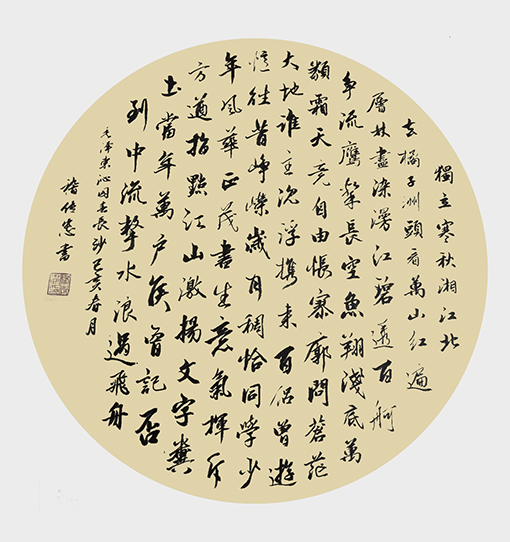 獨立寒秋湘江北
去橘子洲頭看萬山紅遍
層林盡染漫江碧透百舸
爭流鷹擊長空魚翔淺底萬
類霜天竞自由悵寥廓問蒼茫
大地誰主沉浮攜来百侣曾遊
憶往昔崢嶸歲月稠恰同學少
年風華正茂書生意氣揮斥
方遒指點江山激揚文字糞
土當年萬户侯曾記否
到中流擊水浪遏飛舟
毛澤東沁园春長沙己亥春月
書